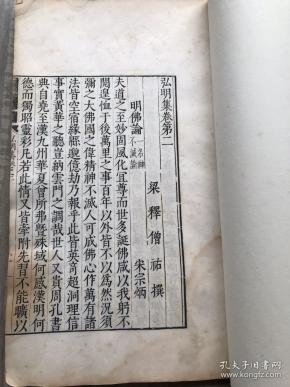 弘明集卷第二
梁釋僧祐撰
明佛論 一名神不滅論
宋宗炳
夫道之至妙固風化宜尊而世多誕佛咸以我躬不
閱遑恤于後萬里之事百年以外皆不以為然況須
彌之大佛國之偉精神不滅人可成佛心作萬有諸
法皆空宿緣綿邈億劫乃報乎此皆英奇超洞理信
事實黃華之聽豈納雲門之調哉世人又貴周孔書
典自堯至漢九州華夏曾所弗暨殊域何感漢明何
德而獨昭靈彩凡若此情又皆牽附先習不能曠以
孔夫子旧书网